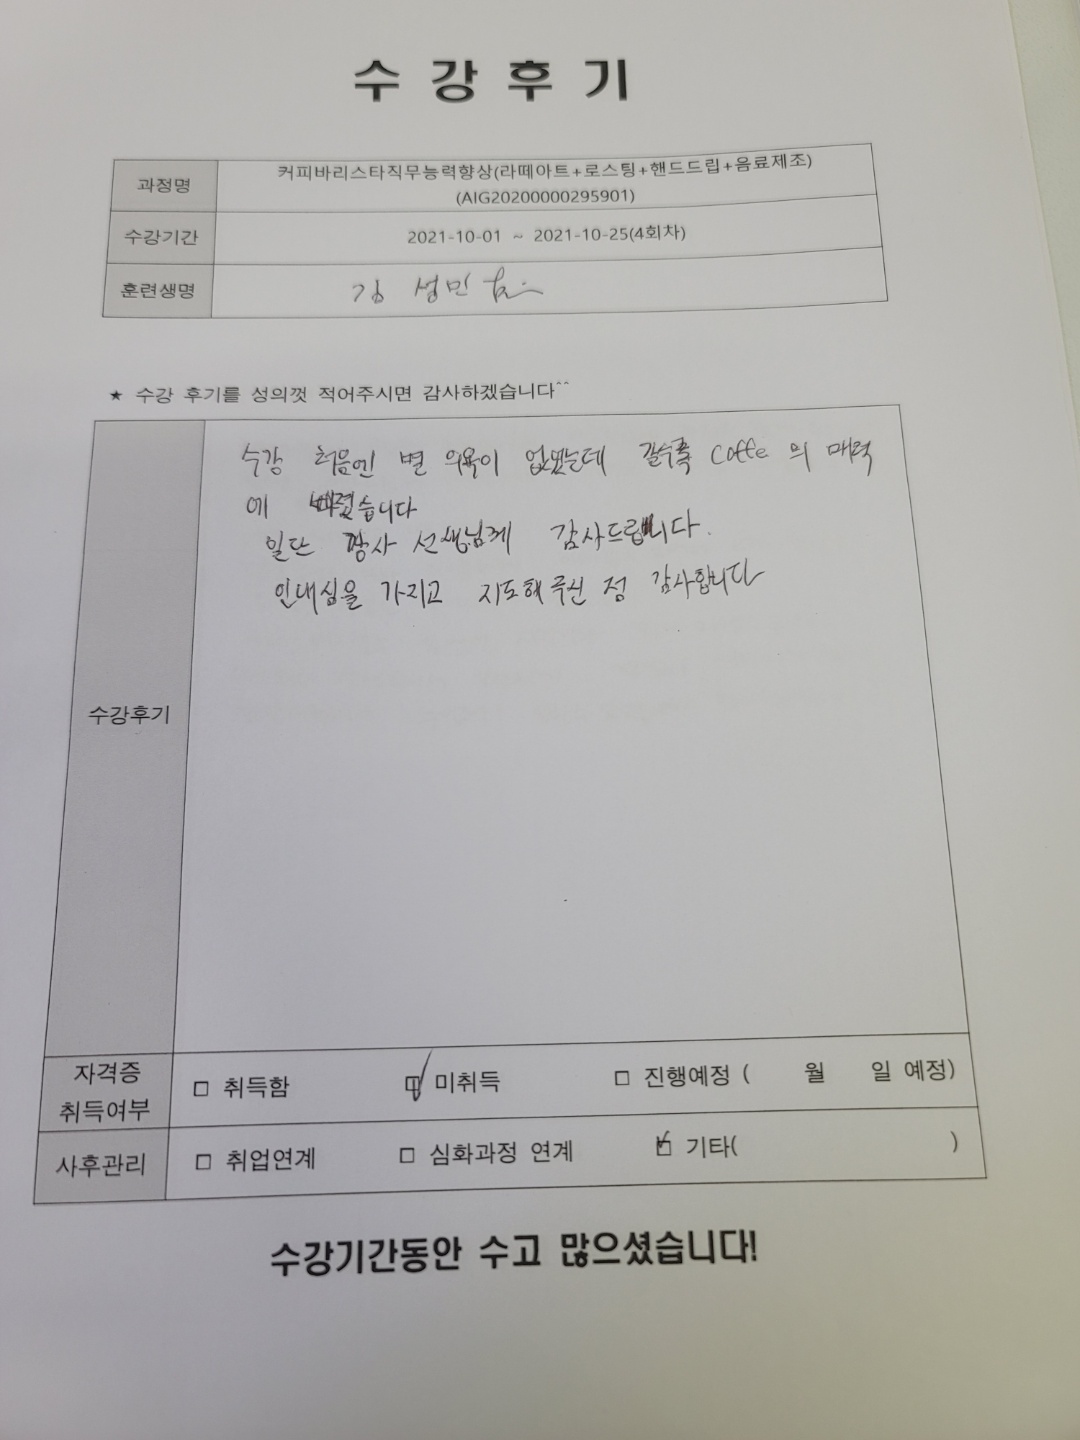 수 강 후 기
과정명
커피바리스타직무능력향상(라떼아트+로스팅+핸드드립+음료제조)
(AIG20200000295901)
수강기간
2021-10-01 ~ 2021-10-25(4회차)
훈련생명
김 성민
★ 수강 후기를 성의껏 적어주시면 감사하겠습니다^^
수강후기
수강 처음엔 별 의욕이 없었는데 갈수록 coffe 의 매력
에 빠졌습니다
일단 강사 선생님께 감사드립니다.
인내심을 가지고 지도해 주신 점 감사합니다
자격증
취득여부
□ 취득함 □ 미취득 □ 진행예정 ( 월 일 예정)
사후관리
□ 취업연계 □ 심화과정 연계 □ 기타( )
수강기간동안 수고 많으셨습니다!